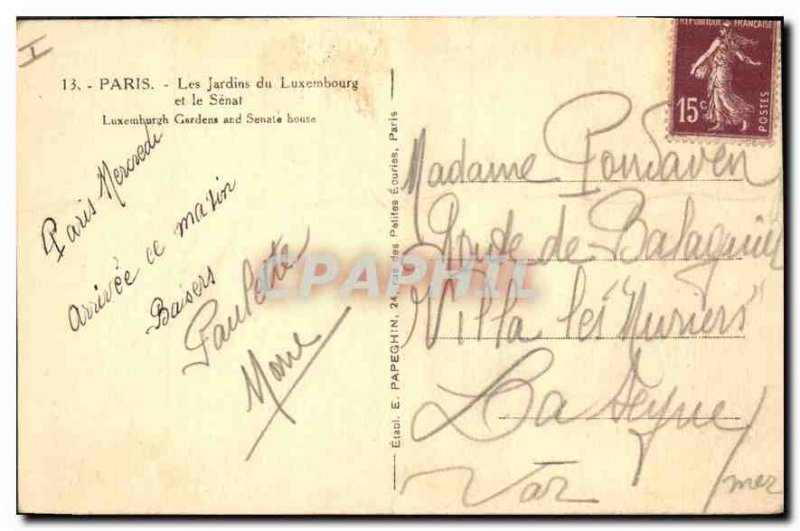 I
13. - PARIS. - Les Jardins du Luxembourg
et le Sénat
Luxemburgh Gardens and Senate house
Paris Mercredi
arrivée ce matin
Baisers
Paulette
Etabl. E. PAPEGHIN, 24, rue des Petites Ecuries, Paris
REPUBLIQUE FRANÇAISE
15c
POSTES
Madame Pondaven
Route de Balaguier
Villa "les Muriers"
La Seyne s/
Var mer
CPAPHIL